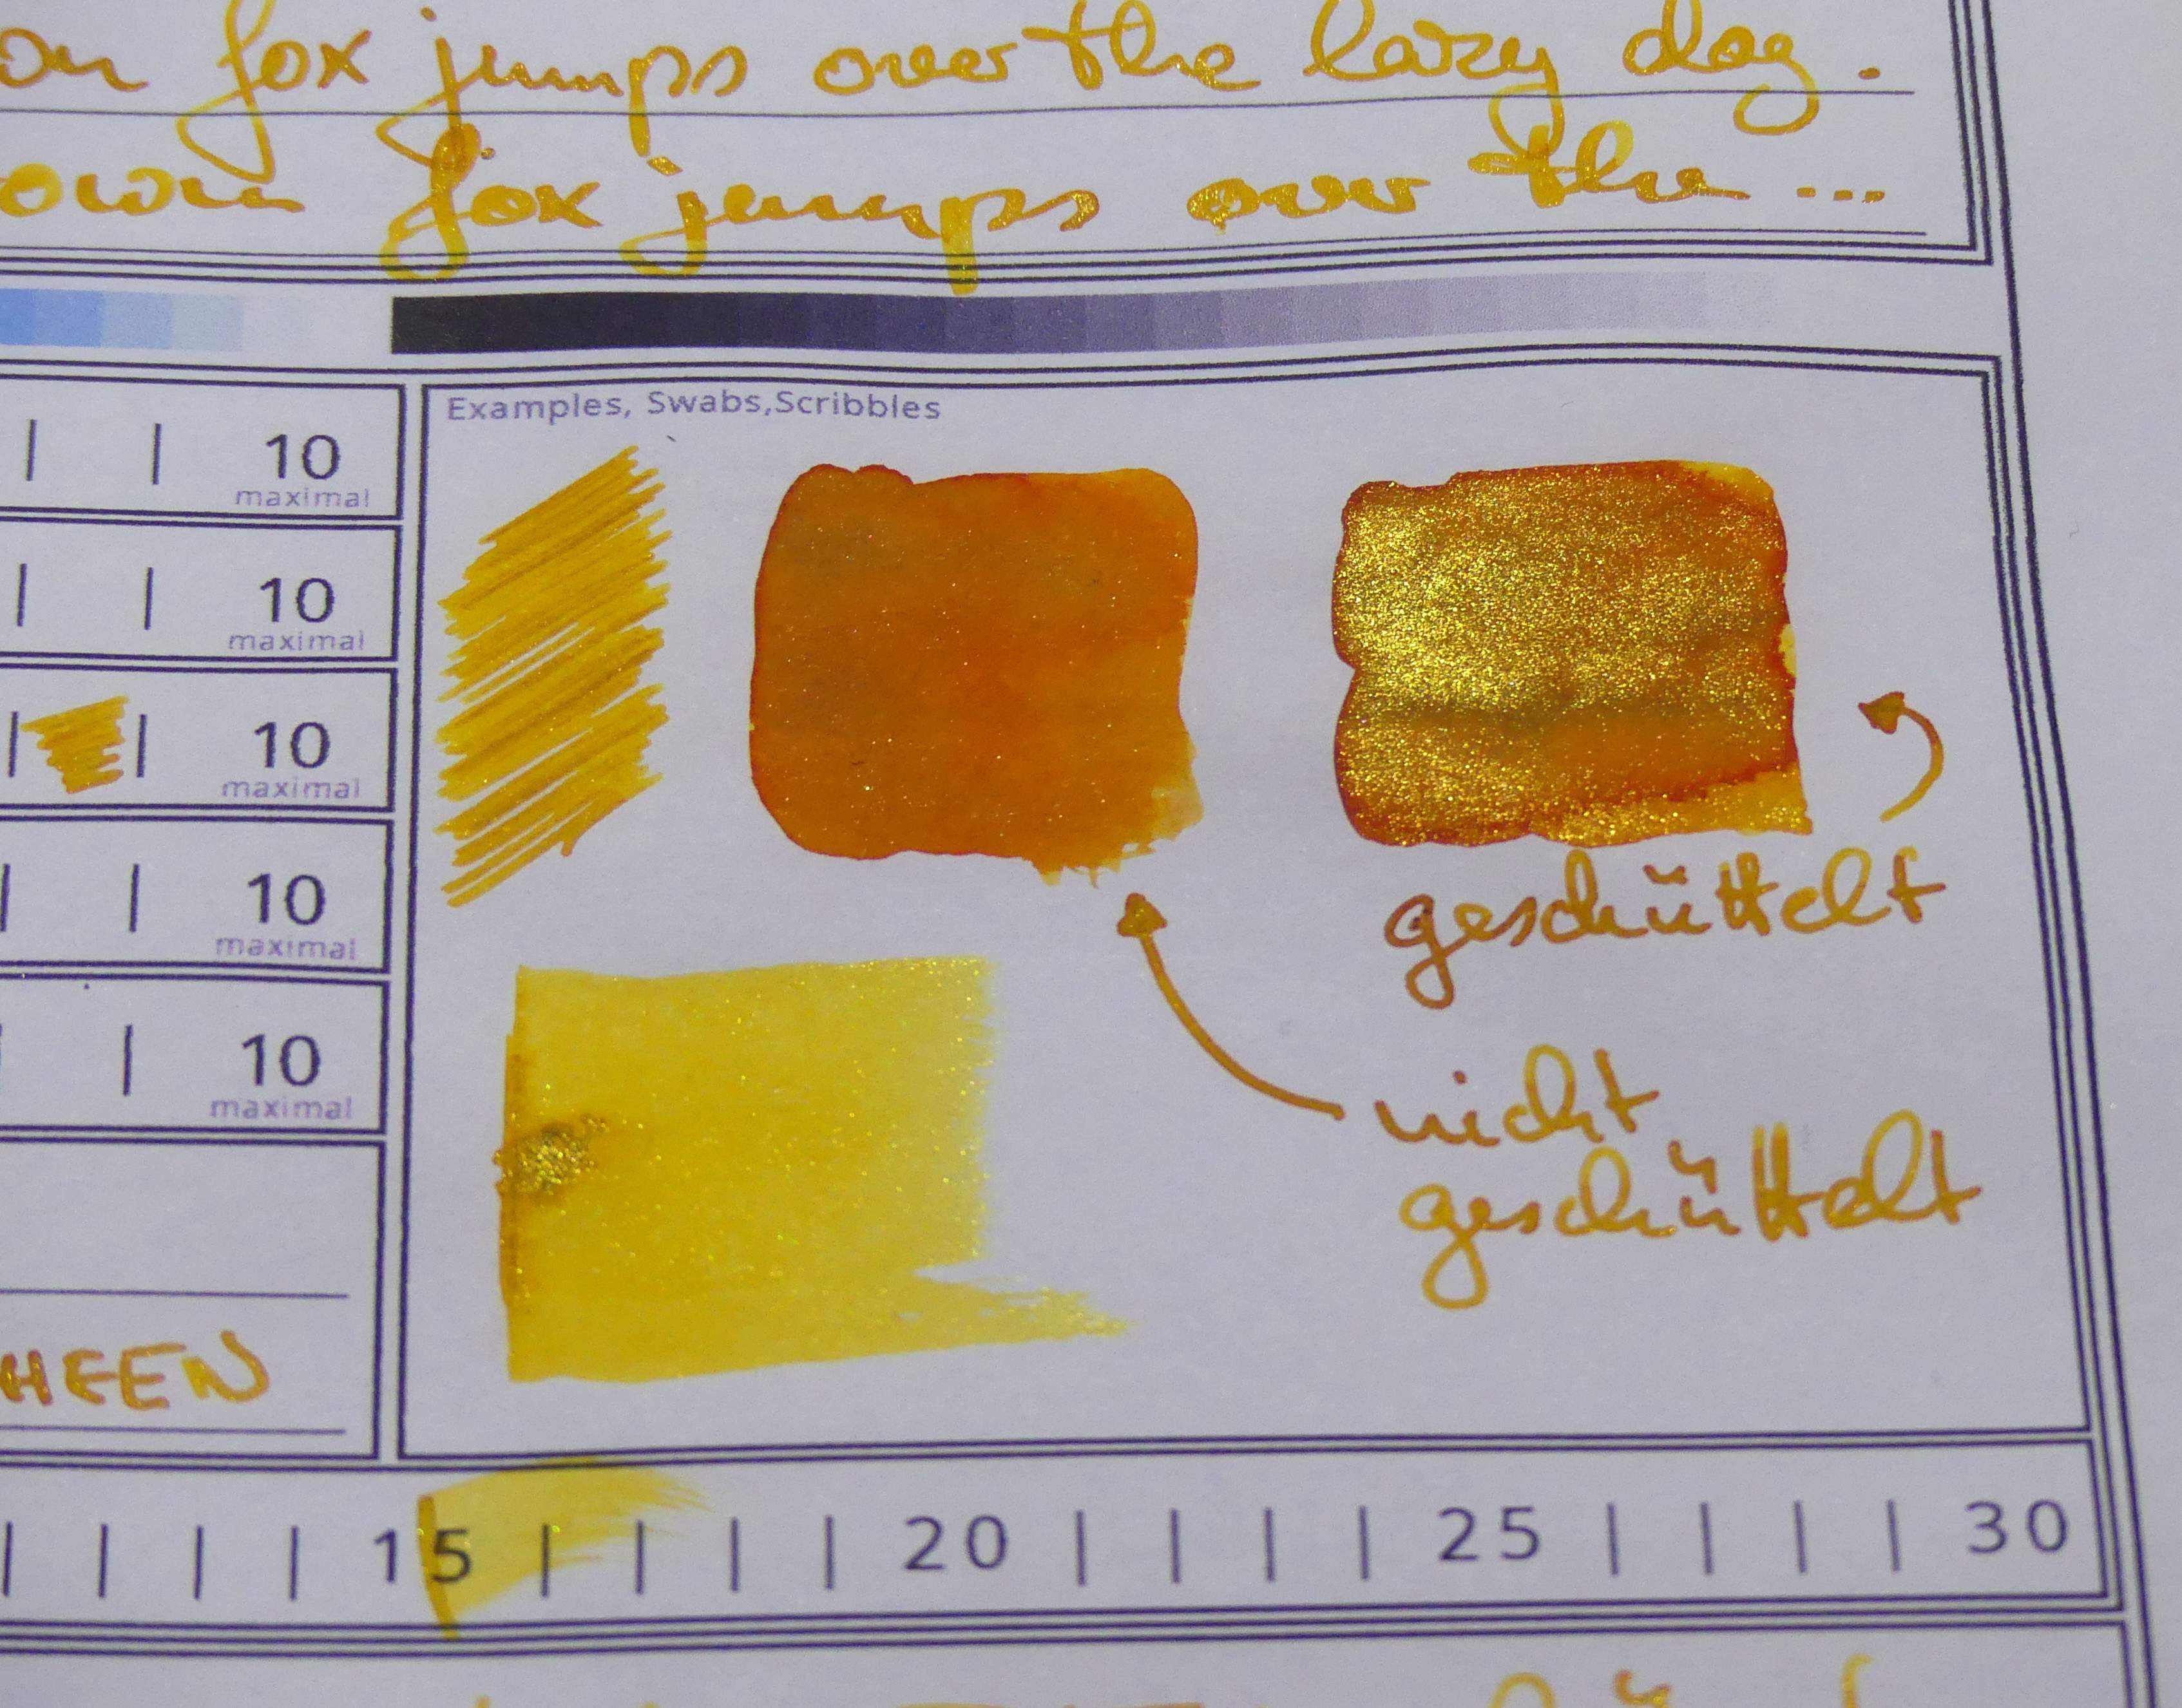 fox jumps over the lazy dog.
own fox jumps over the ...
Examples, Swabs,Scribbles
10
maximal
10
maximal
10
maximal
10
maximal
10
maximal
geschüttelt
nicht
geschüttelt
HEEN
15 20 25 30